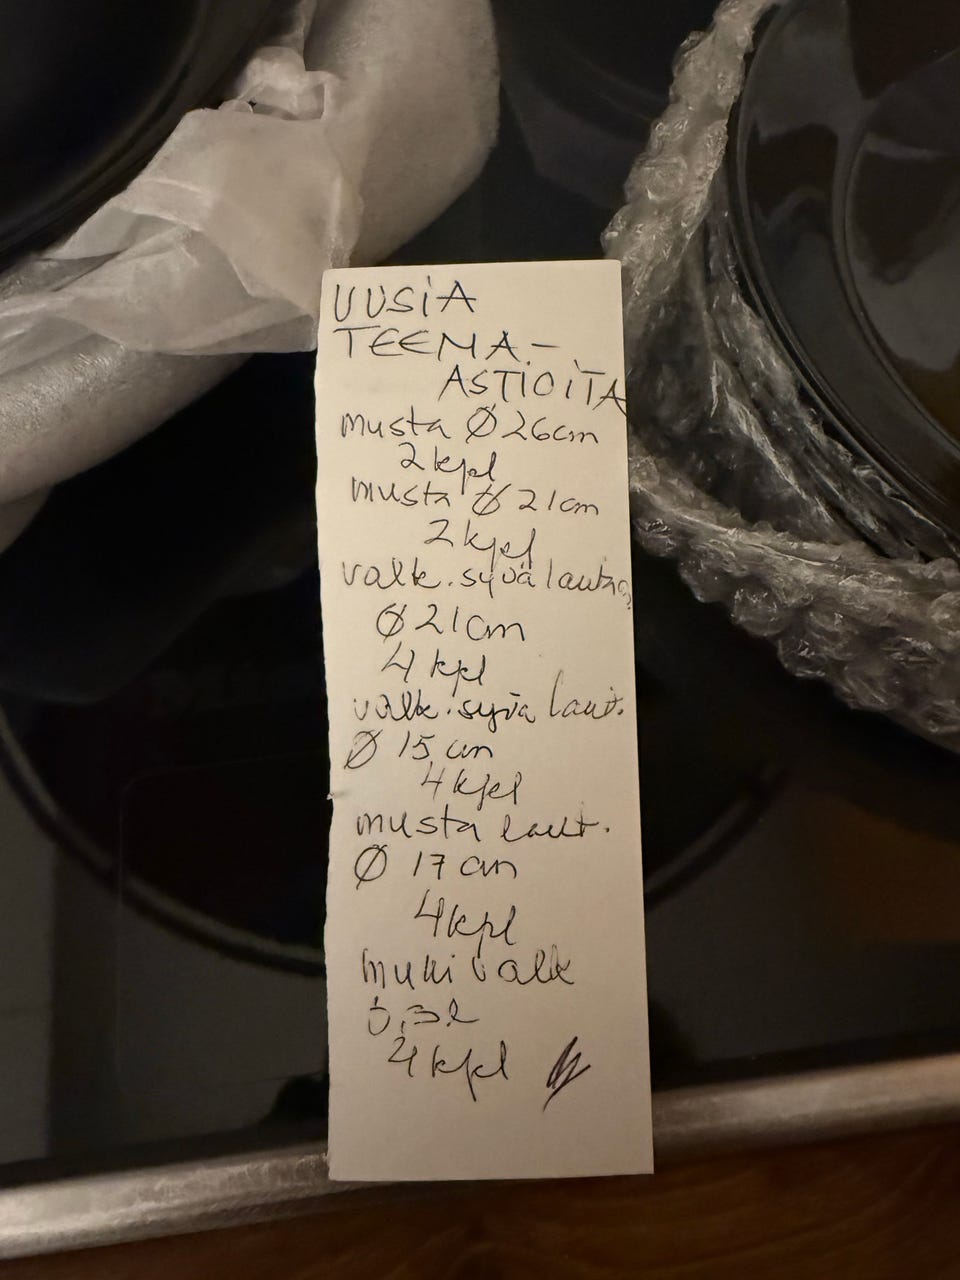 UUSIA
TEEMA-
ASTIOITA
musta Ø 26cm
2 kpl
musta Ø 21cm
2 kpl
valk. syvä lautas
Ø 21cm
4 kpl
valk. syvä laut.
Ø 15 cm
4 kpl
musta laut.
Ø 17 cm
4 kpl
muki valk
0,3l
4 kpl